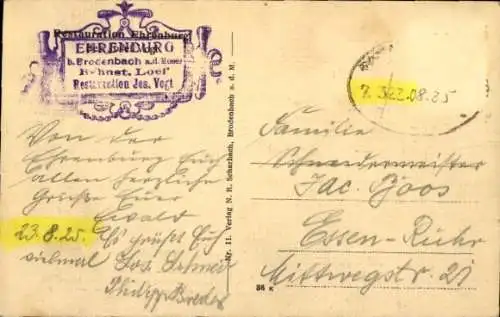 Restauration Ehrenburg
EHRENBURG
b. Brodenbach a.d. Mosel
Bahnst. Loef
Restauration Jos. Vogt
Z. 322.08.25
Von der
Ehrenburg Euch
allen herzliche
Grüße Euer
Ewald
23.8.25. Es grüßt Euch
vielmal Jos.
Philipp
Nr. 11 Verlag N. R. Scharbach, Brodenbach a. d. M.
36 K
Familie
Schneidermeister
Jac. Joos
Essen-Ruhr
Mittwegstr. 21